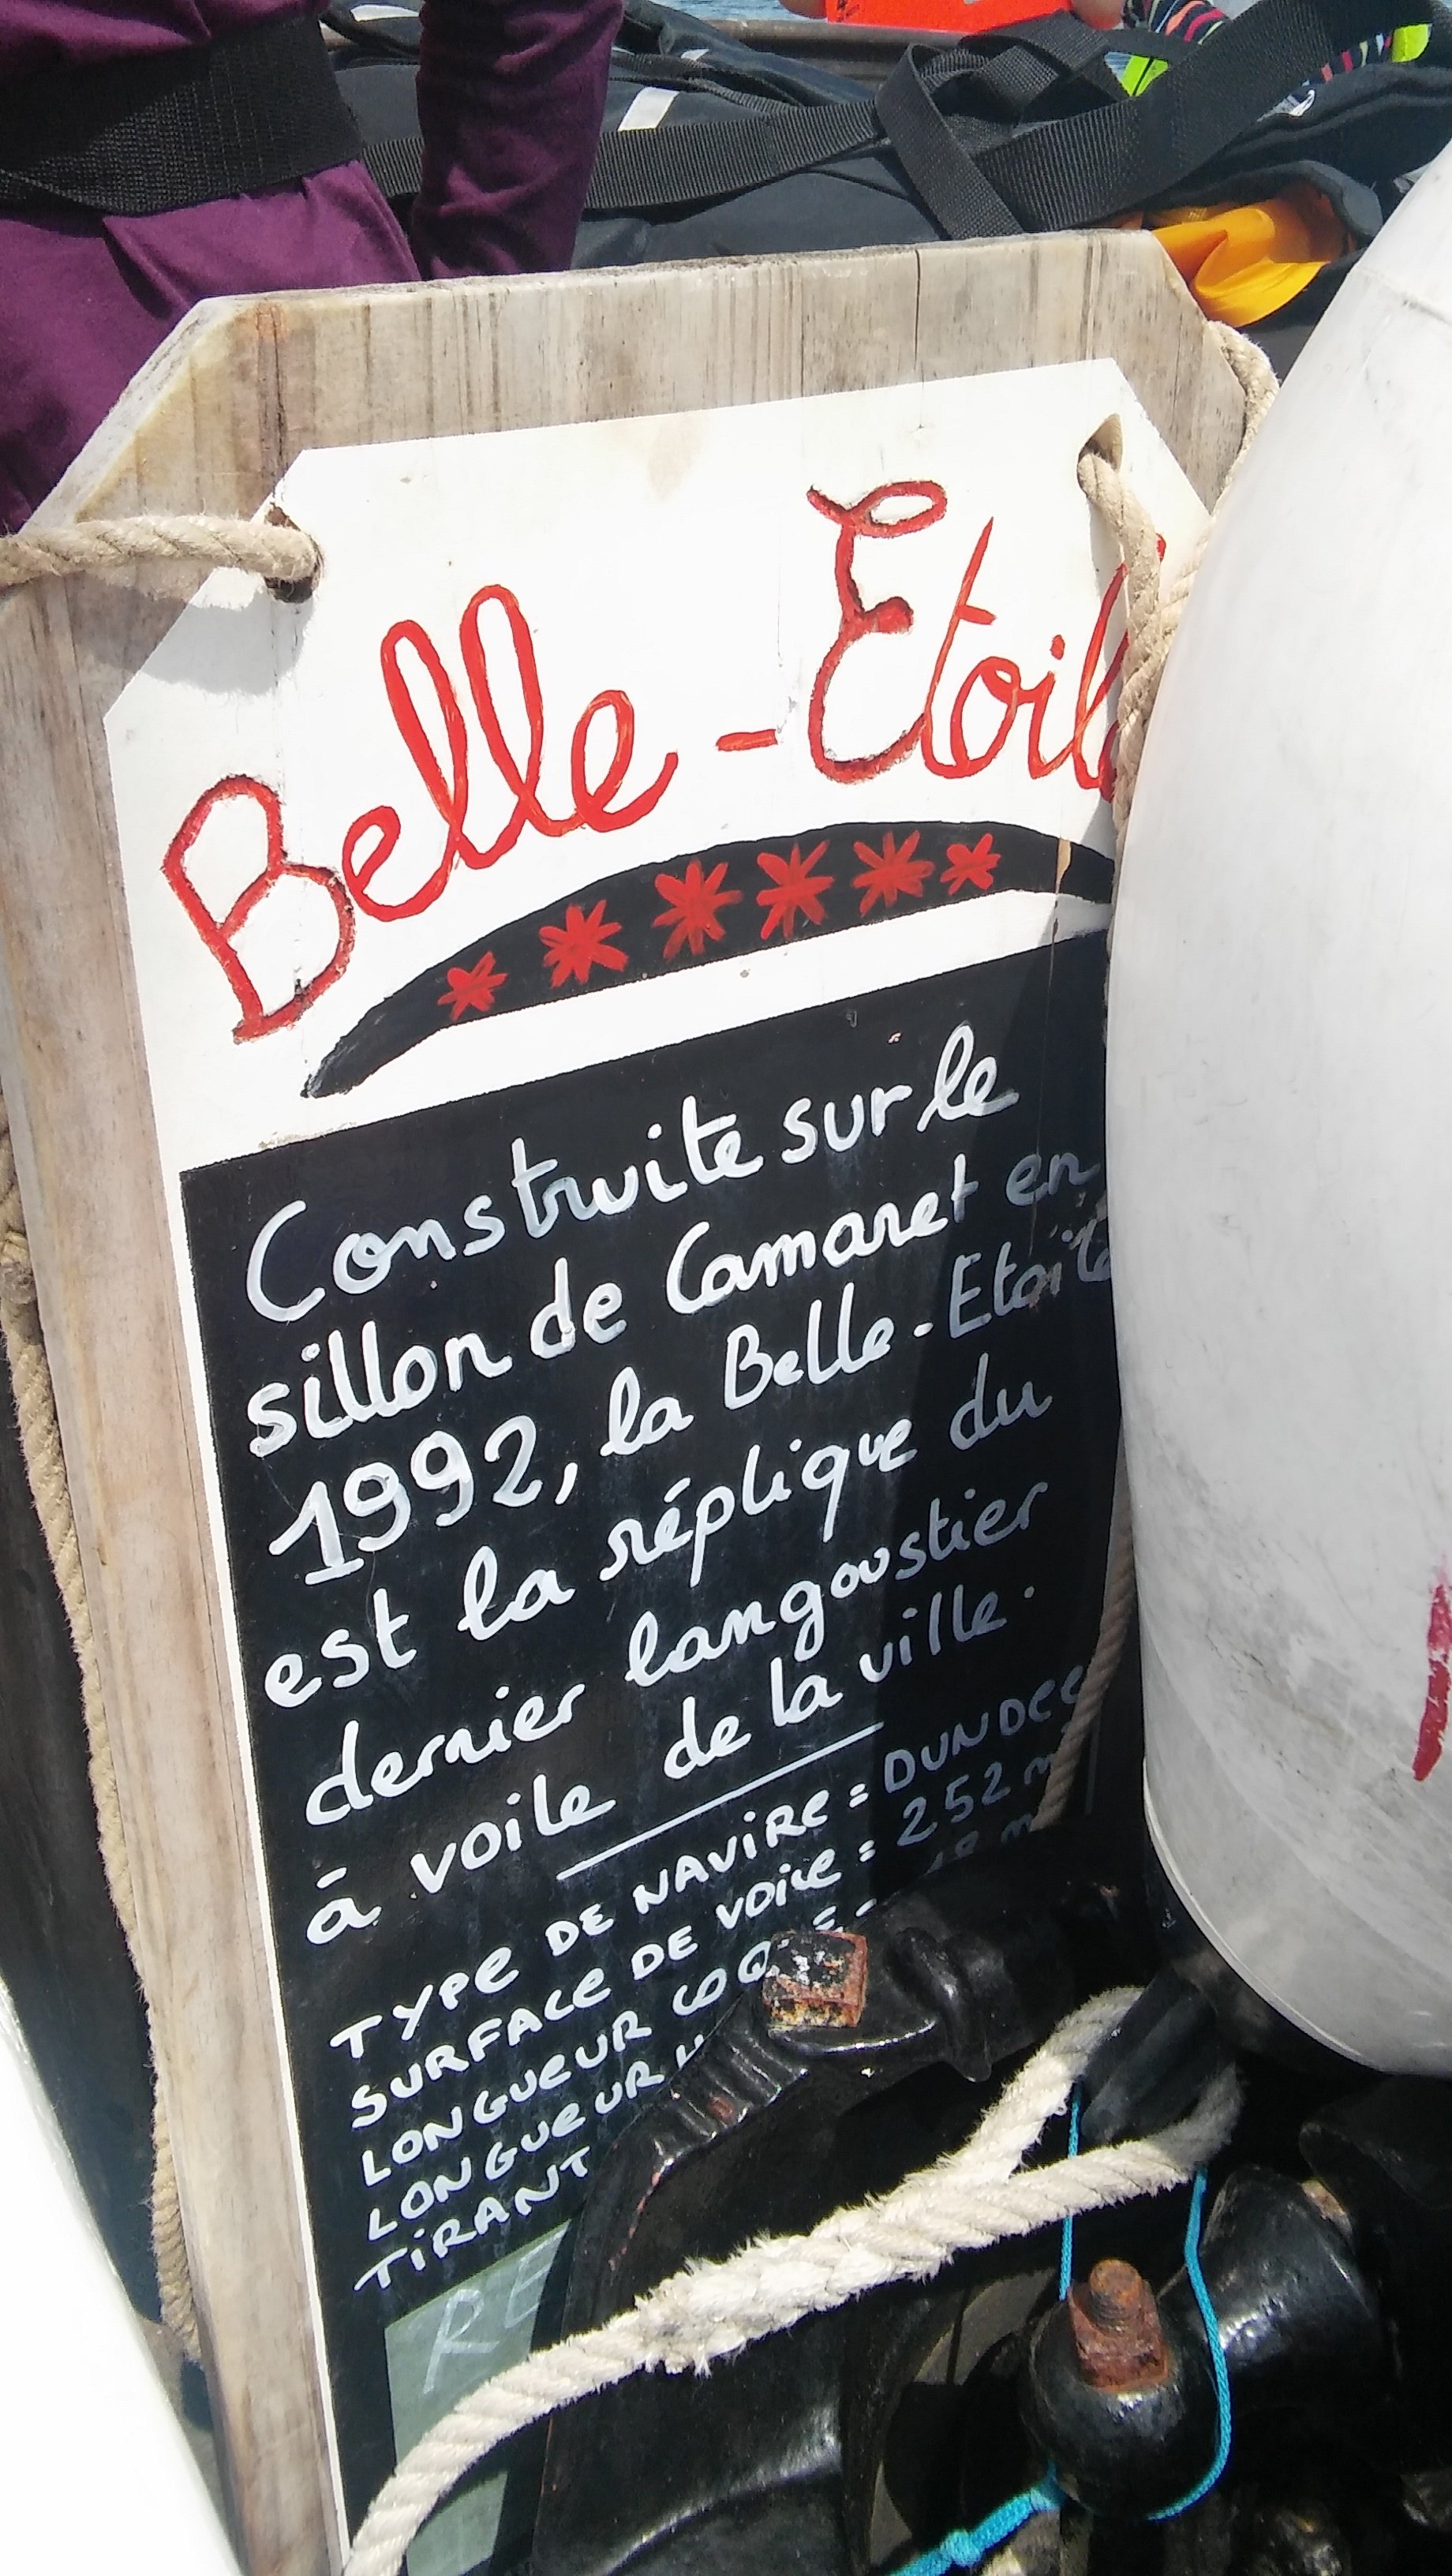 Belle-Etoile
Construite sur le
sillon de Camaret en
1992, la Belle-Etoile
est la réplique du
dernier langoustier
à voile de la ville.
TYPE DE NAVIRE = DUNDEE
SURFACE DE VOILE = 252 m
LONGUEUR COQ
LONGUEUR
TIRANT
RE